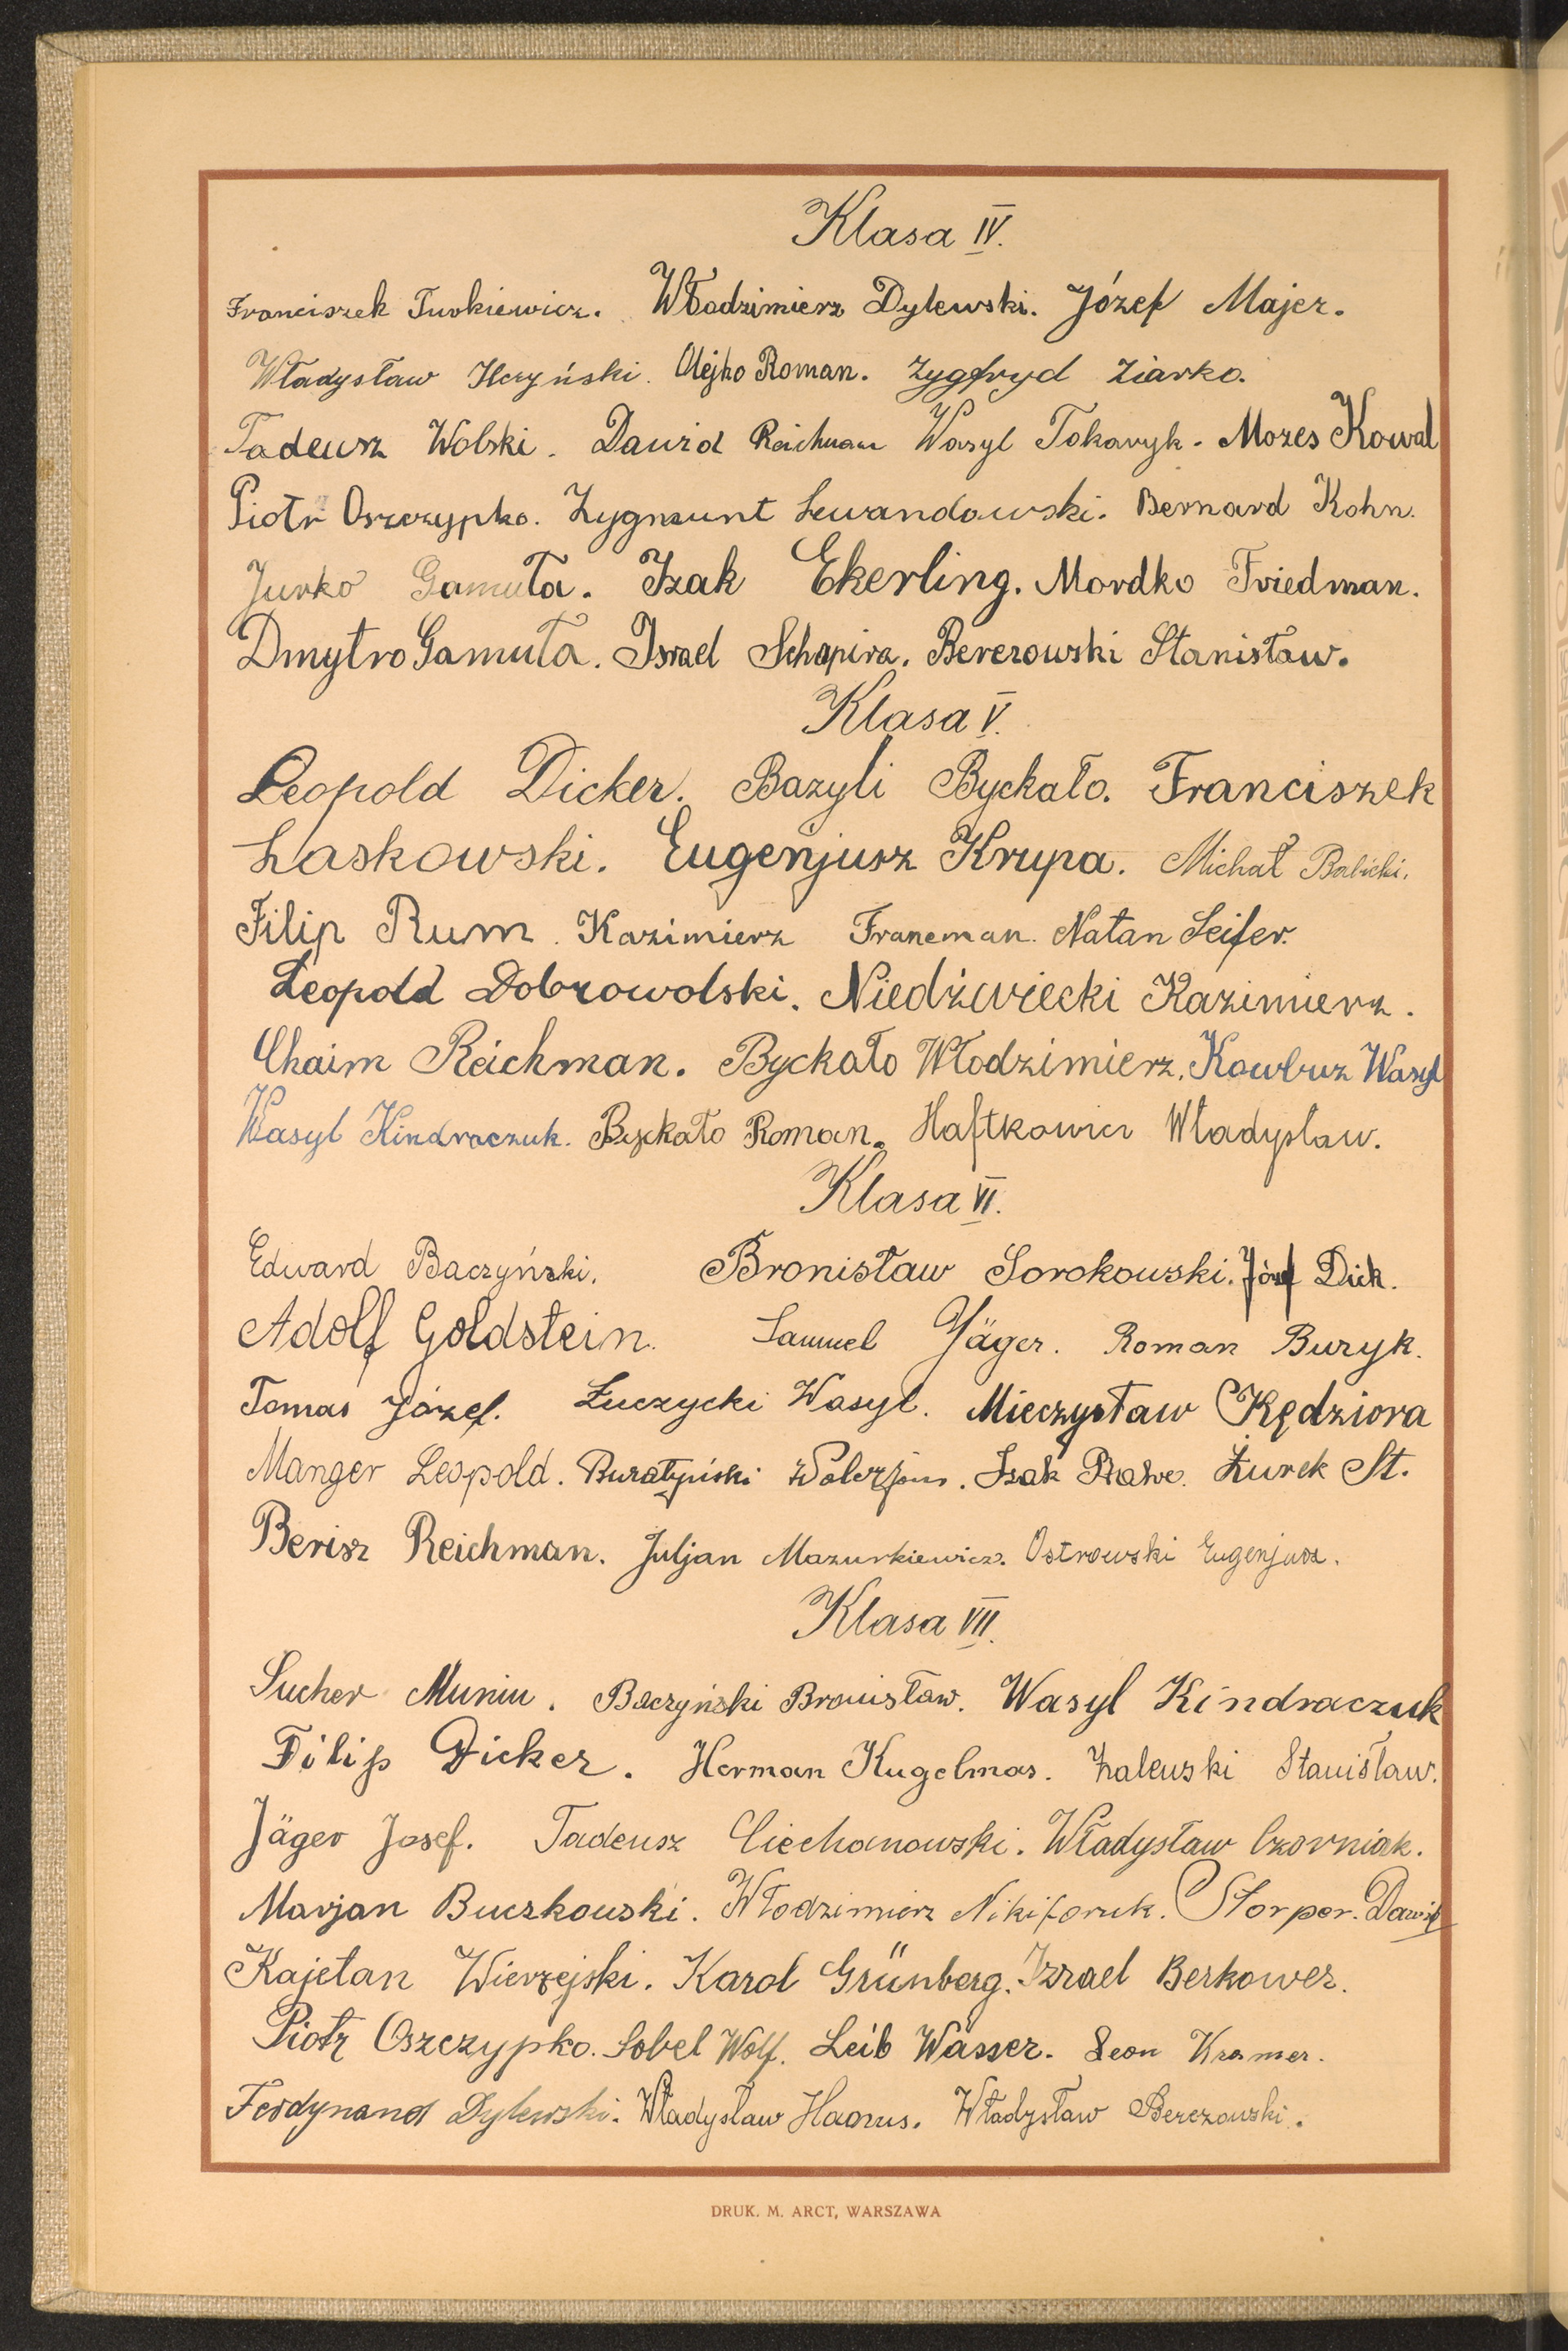 Klasa IV.
Franciszek Turkiewicz. Włodzimierz Dylewski. Józef Majer.
Władysław Ilczyński. Olejko Roman. Zygfryd Ziarko.
Tadeusz Wolski. Dawid Reichman Wasyl Tokaryk. Mozes Kowal
Piotr Oszczypko. Zygmunt Lewandowski. Bernard Kohn.
Jurko Gamuła. Izak Ekerling. Mordko Friedman.
Dmytro Gamuła. Israel Schapira. Berezowski Stanisław.
Klasa V.
Leopold Dicker. Bazyli Byckało. Franciszek
Laskowski. Eugenjusz Krupa. Michał Babicki.
Filip Rum. Kazimierz Franeman. Natan Seifer.
Leopold Dobrowolski. Niedźwiecki Kazimierz.
Chaim Reichman. Byckało Włodzimierz. Kowbuz Wasyl
Wasyl Kindraczuk. Byckało Roman. Haftkowicz Władysław.
Klasa VI.
Edward Baczyński. Bronisław Sorokowski. Józef Dick.
Adolf Goldstein. Samuel Jäger. Roman Buryk.
Tomas Józef. Łuczycki Wasyl. Mieczysław Kędziora
Manger Leopold. Buratyński Walerjan. Izak Żurek St.
Berisz Reichman. Juljan Mazurkiewicz. Ostrowski Eugenjusz.
Klasa VII.
Sucher Muniu. Baczyński Bronisław. Wasyl Kindraczuk
Filip Dicker. Herman Kugelmas. Zalewski Stanisław.
Jäger Josef. Tadeusz Ciechanowski. Władysław Czorniak.
Marjan Buczkowski. Włodzimierz Nikiforuk. Storper. Dawid
Kajetan Wierzejski. Karol Grünberg. Izrael Berkower.
Piotr Oszczypko. Sobel Wolf. Leib Wasser. Leon Kramer.
Ferdynand Dylewski. Władysław Hanus. Władysław Berezowski.
DRUK. M. ARCT, WARSZAWA